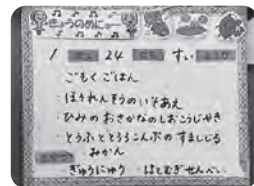 きょうのめにゅー
1 がつ 24 にち すい ようび
ごもくごはん
・ほうれんそうのいそあえ
・ひみのおさかなのしおこうじやき
・とうふととろろこんぶのすましじる
・みかん
ぎゅうにゅう ・はとむぎせんべい